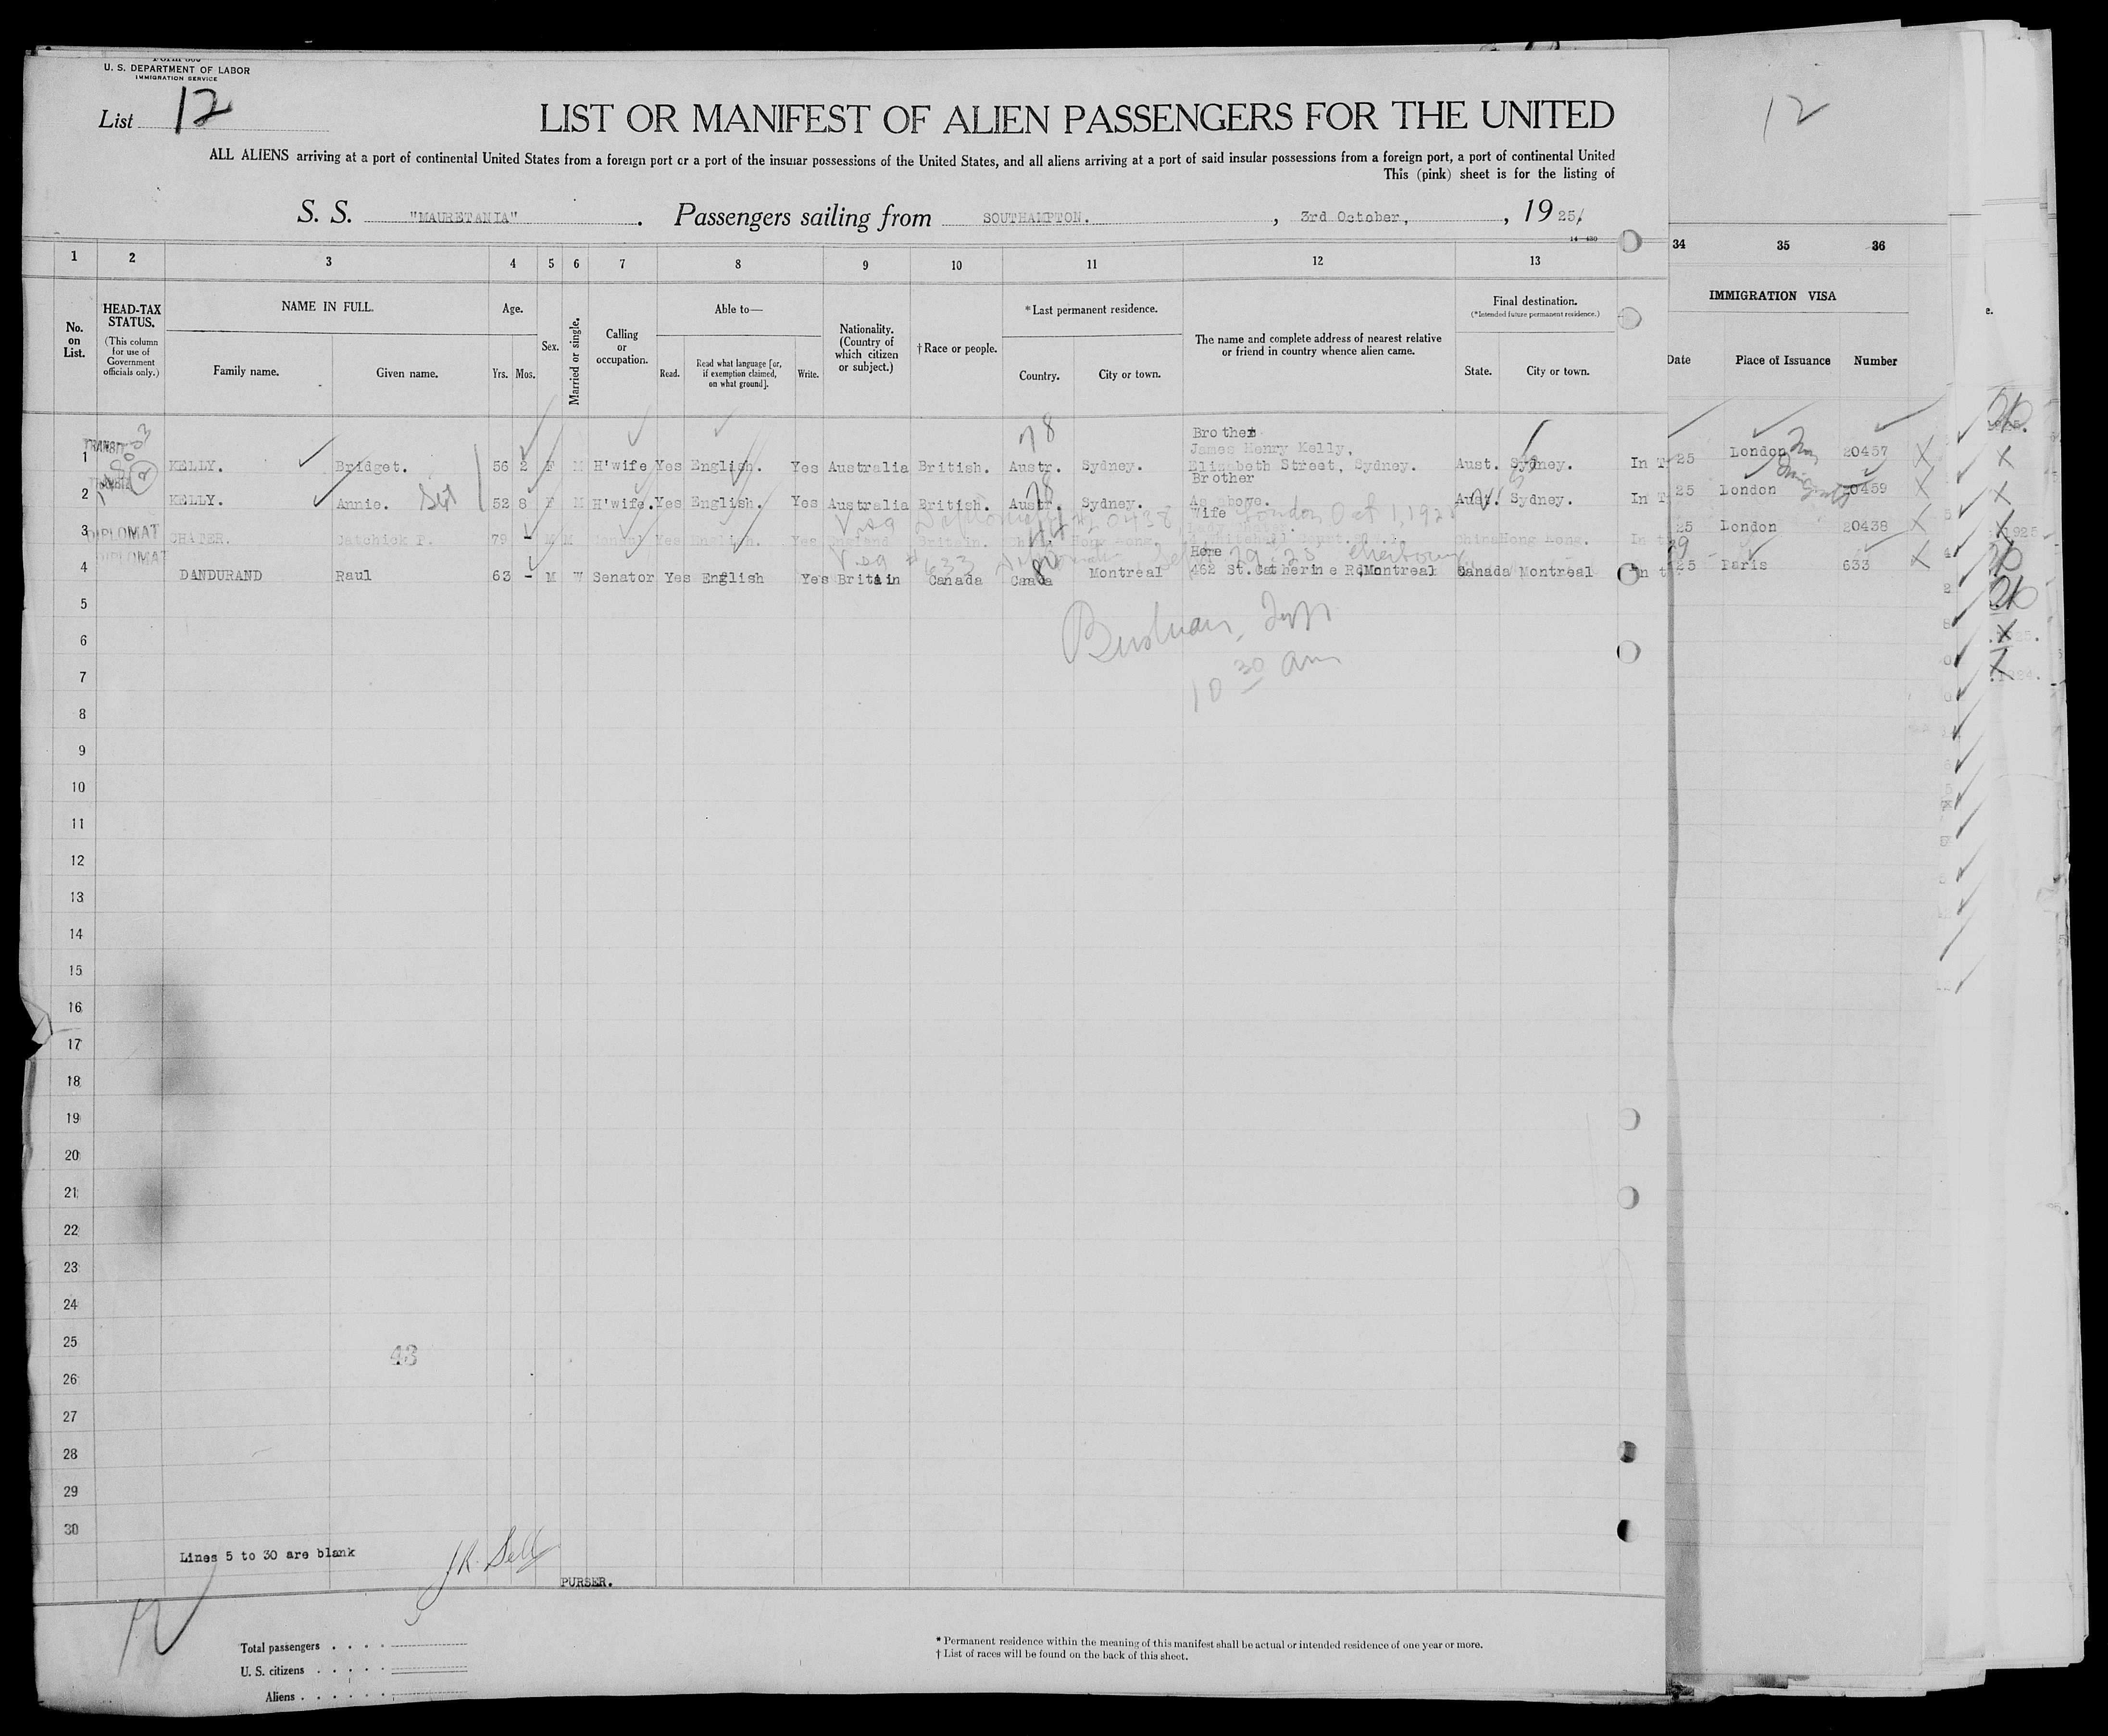 U. S. DEPARTMENT OF LABOR
IMMIGRATION SERVICE
List 12
LIST OR MANIFEST OF ALIEN PASSENGERS FOR THE UNITED
12
ALL ALIENS arriving at a port of continental United States from a foreign port or a port of the insular possessions of the United States, and all aliens arriving at a port of said insular possessions from a foreign port, a port of continental United
This (pink) sheet is for the listing of
S. S. "MAURETANIA" . Passengers sailing from SOUTHAMPTON. , 3rd October, , 19 25/
14—430
1 2 3 4 5 6 7 8 9 10 11 12 13 34 35 36
No. on List.
HEAD-TAX STATUS.
(This column for use of Government officials only.)
NAME IN FULL.
Family name. Given name.
Age.
Yrs. Mos.
Sex.
Married or single.
Calling or occupation.
Able to—
Read. Read what language [or, if exemption claimed, on what ground]. Write.
Nationality. (Country of which citizen or subject.)
†Race or people.
*Last permanent residence.
Country. City or town.
The name and complete address of nearest relative or friend in country whence alien came.
Final destination.
(*Intended future permanent residence.)
State. City or town.
IMMIGRATION VISA
Date Place of Issuance Number
78
Brother
James Henry Kelly,
TRANSIT
1 KELLY. Bridget. 56 2 F M H'wife Yes English. Yes Australia British. Austr. Sydney. Elizabeth Street, Sydney. Aust. Sydney. In T 25 London 20457 X
Brother
2 KELLY. Annie. 52 8 F M H'wife. Yes English. Yes Australia British. Austr. Sydney. As above. Aust. Sydney. In T 25 London 20459 X
Visa London Oct 1, 192
Wife
DIPLOMAT
3 CHATER. Catchick P. 79 - M M Consul Yes English. Yes England Britain. China Hong Kong. China Hong Kong. In t 25 London 20438 X
Visa # 633 29 - 25 Cherbourg
Home
DIPLOMAT
4 DANDURAND Raul 63 - M W Senator Yes English Yes Britain Canada Canada Montreal 462 St.Catherine Rd, Montreal Canada Montreal In t 25 Paris 633 X
5
6
10 30 am
7
8
9
10
11
12
13
14
15
16
17
18
19
20
21
22
23
24
25
43
26
27
28
29
30
Lines 5 to 30 are blank
PURSER.
Total passengers
U. S. citizens
Aliens
* Permanent residence within the meaning of this manifest shall be actual or intended residence of one year or more.
† List of races will be found on the back of this sheet.